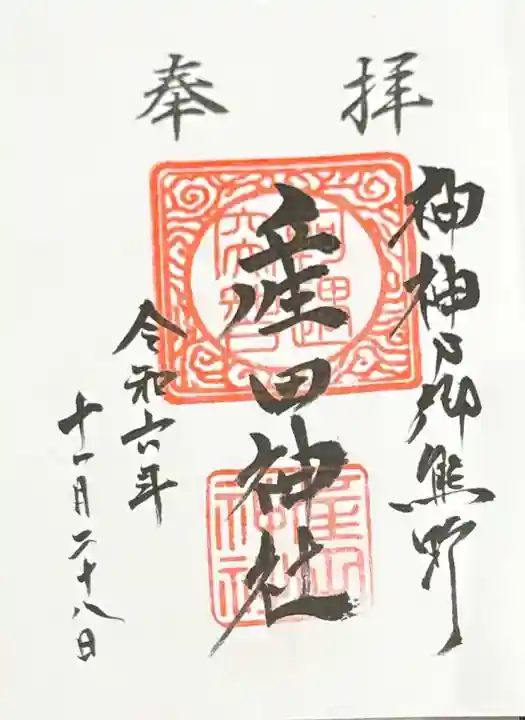 奉拝
神神乃郷熊野
産田神社
産田
神社
令和六年
十一月二十八日